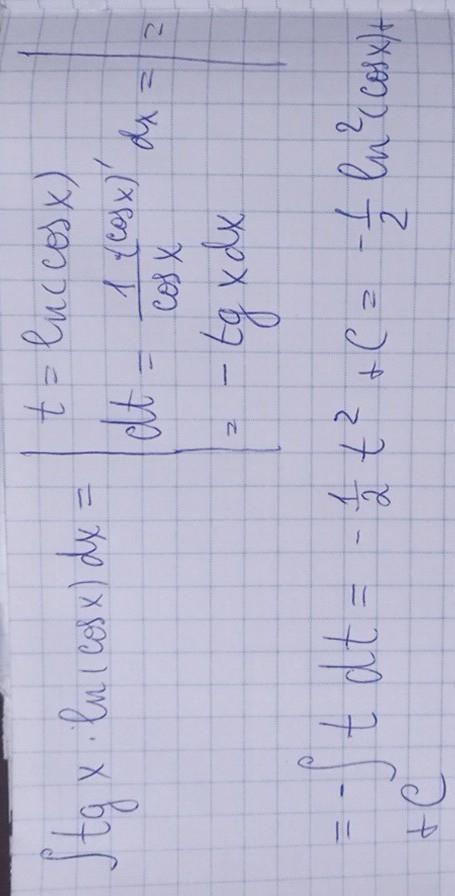 ∫ tg x · ln(cos x) dx = | t = ln(cos x)
dt = 1·(cos x)' / cos x dx =
= - tg x dx | =
= - ∫ t dt = - 1/2 t² + C = - 1/2 ln²(cos x) +
+ C